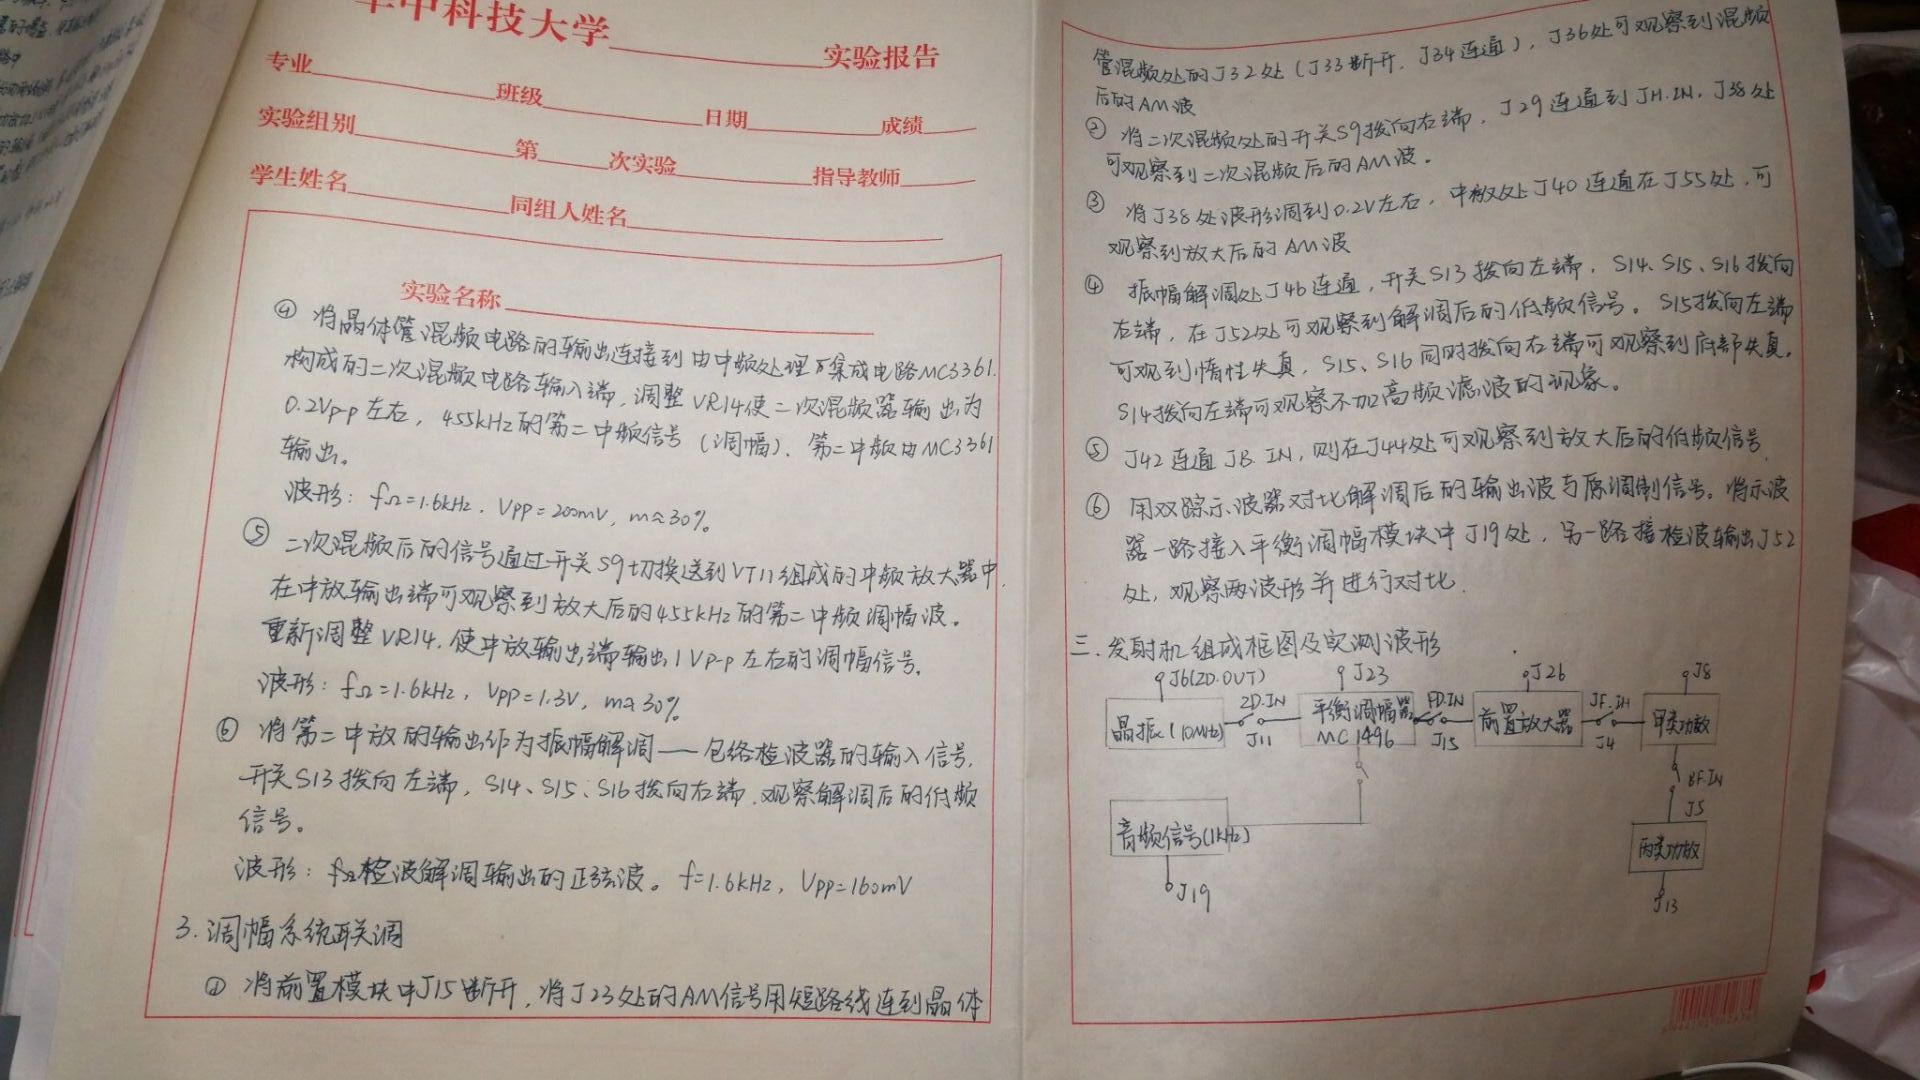 华中科技大学 实验报告
专业 班级 日期 成绩
实验组别 第 次实验 指导教师
学生姓名 同组人姓名
实验名称
④ 将晶体管混频电路的输出连接到由中频处理集成电路MC3361
构成的二次混频电路输入端,调整VR14使二次混频器输出为
0.2Vp-p左右,455kHz的第二中频信号(调幅)、第二中频由MC3361
输出。
波形:fΩ=1.6kHz,VPP=200mV,m≈30%。
⑤ 二次混频后的信号通过开关S9切换送到VT11组成的中频放大器中,
在中放输出端可观察到放大后的455kHz的第二中频调幅波。
重新调整VR14,使中放输出端输出1Vp-p左右的调幅信号。
波形:fΩ=1.6kHz,VPP=1.3V,m≈30%
⑥ 将第二中放的输出作为振幅解调——包络检波器的输入信号,
开关S13拨向左端,S14、S15、S16拨向右端,观察解调后的低频
信号。
波形:检波解调输出的正弦波。f=1.6kHz,VPP=160mV
3.调幅系统联调
① 将前置模块中J15断开,将J23处的AM信号用短路线连到晶体
管混频处的J32处(J33断开,J34连通),J36处可观察到混频
后的AM波
② 将二次混频处的开关S9拨向右端,J29连通到JH.IN,J38处
可观察到二次混频后的AM波。
③ 将J38处波形调到0.2V左右,中放处J40连通在J55处,可
观察到放大后的AM波
④ 振幅解调处J46连通,开关S13拨向左端,S14、S15、S16拨向
右端,在J52处可观察到解调后的低频信号。S15拨向左端
可观到惰性失真,S15、S16同时拨向右端可观察到底部失真。
S14拨向左端可观察不加高频滤波的现象。
⑤ J42连通JB.IN,则在J44处可观察到放大后的低频信号
⑥ 用双踪示波器对比解调后的输出波与原调制信号。将示波
器一路接入平衡调幅模块中J19处,另一路接检波输出J52
处,观察两波形并进行对比.
三.发射机组成框图及实测波形
J6(ZD.OUT) J23 J26 J8
晶振(10MHz) ZD.IN J11 平衡调幅器 MC1496 FD.IN J15 前置放大器 JF.IN J4 甲类功放
BF.IN
J5
音频信号(1kHz) 丙类功放
J19 J13